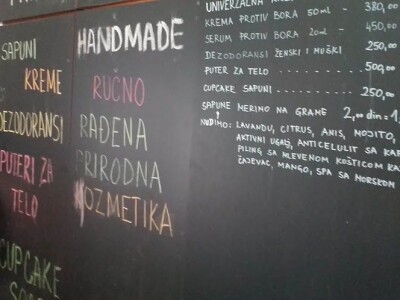 SAPUNI
KREME
DEZODORANSI
PUTERI ZA
TELO
CUPCAKE
HANDMADE
RUČNO
RAĐENA
PRIRODNA
KOZMETIKA
UNIVERZALNA
380,00
KREMA PROTIV BORA 50ml - 450,00
SERUM PROTIV BORA 20ml -
DEZODORANSI ŽENSKI I MUŠKI 250,00
PUTER ZA TELO 500,00
CUPCAKE SAPUNI 250,00
SAPUNE MERIMO NA GRAME 2,00 din = 1
NUDIMO: LAVANDU, CITRUS, ANIS, MOJITO,
AKTIVNI UGALJ, ANTICELULIT SA
PILING SA MLEVENOM KOŠTICOM
MANGO, SPA SA MORSKOM